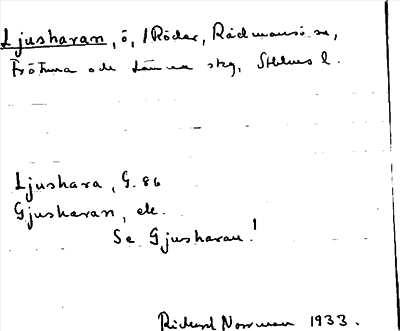 Ljusharan, ö, /Röder, Rådmansö sn,
Frötuna och Länna skg, Sthlms l.
Ljushara, G. 86
Gjusharan, ek.
Se Gjusharan!
Rickard Norrman 1933.